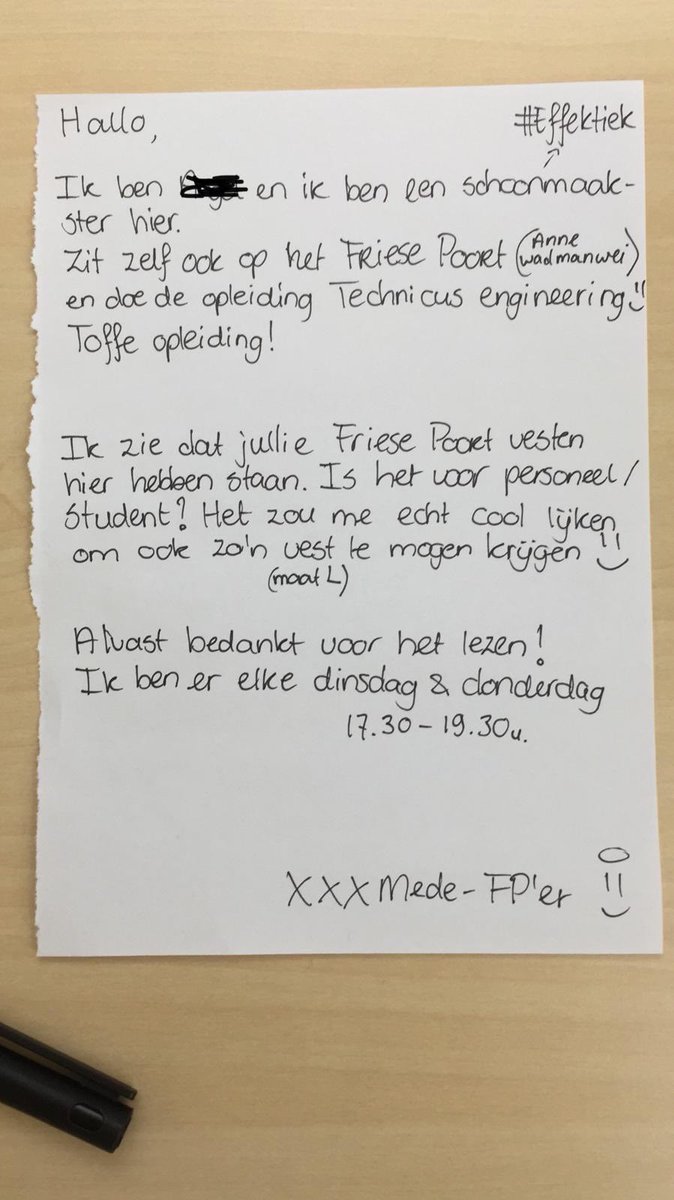 Hallo,
#Effektiek
Ik ben en ik ben een schoonmaak-
ster hier.
Zit zelf ook op het Friese Poort (Anne wadmanwei)
en doe de opleiding Technicus engineering
Toffe opleiding!
Ik zie dat jullie Friese Poort vesten
hier hebben staan. Is het voor personeel/
student? Het zou me echt cool lijken
om ook zo'n vest te mogen krijgen
(maat L)
Alvast bedankt voor het lezen!
Ik ben er elke dinsdag & donderdag
17.30 - 19.30u.
XXX Mede-FP'er